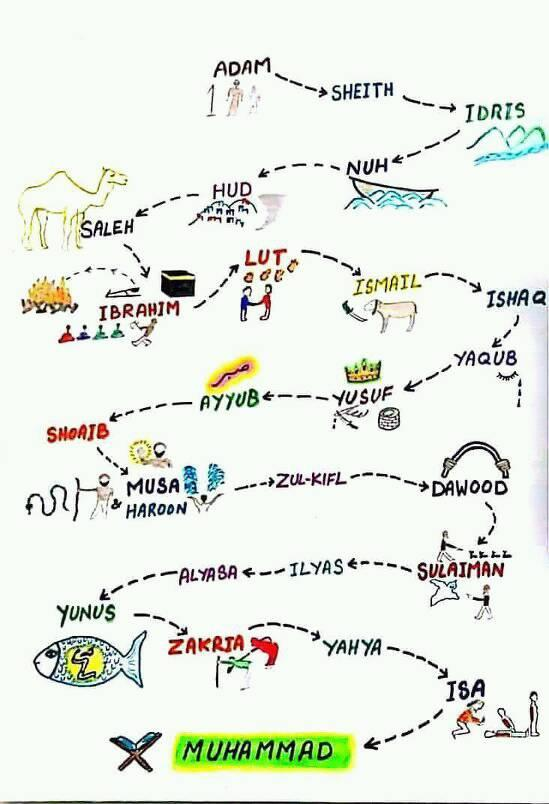 ADAM
1
SHEITH
IDRIS
NUH
HUD
SALEH
IBRAHIM
LUT
ISMAIL
ISHAQ
YAQUB
YUSUF
صبر
AYYUB
SHOAIB
MUSA
& HAROON
ZUL-KIFL
DAWOOD
SULAIMAN
ILYAS
ALYASA
YUNUS
ZAKRIA
YAHYA
ISA
MUHAMMAD